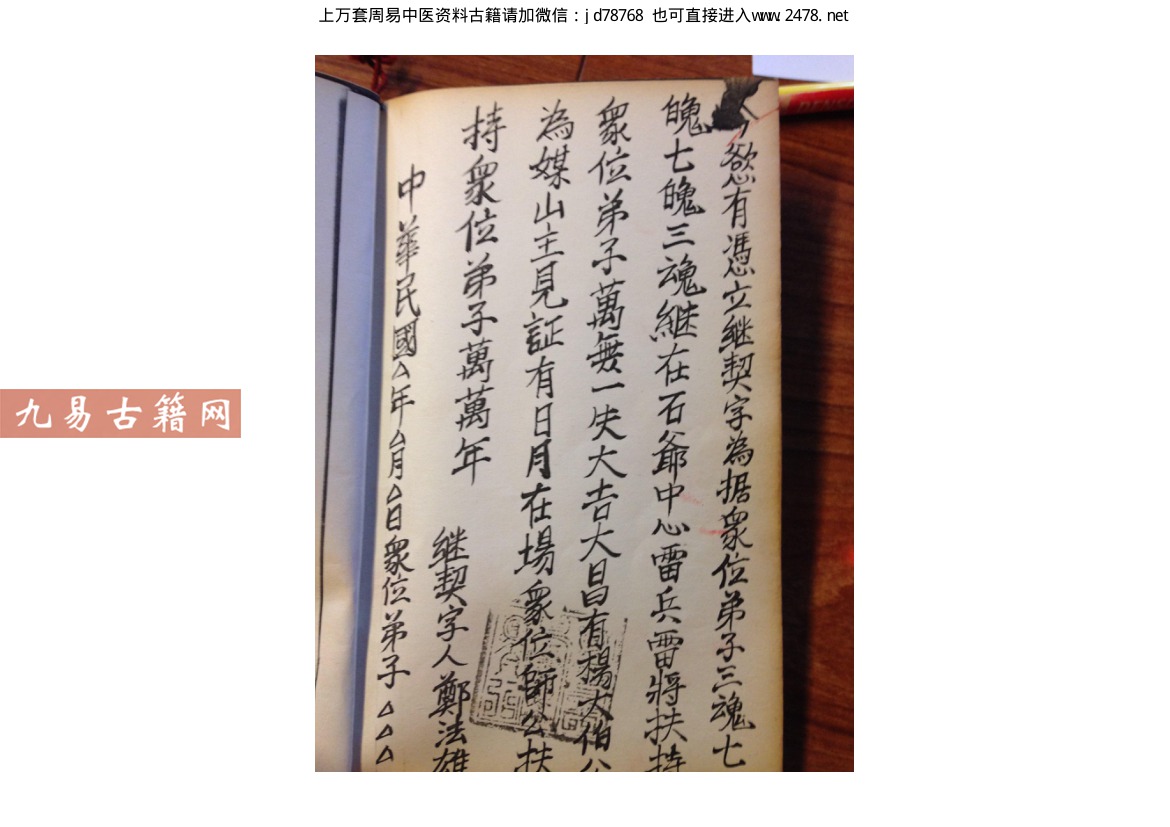 上万套周易中医资料古籍请加微信：jd78768 也可直接进入www.2478.net
九易古籍网
欲有憑立継契字為据衆位弟子三魂七
魄七魄三魂継在石爺中心雷兵雷將扶持
衆位弟子萬無一失大吉大昌有楊大伯公
為媒山主見証有日月在場衆位師公扶
持衆位弟子萬萬年
継契字人鄭法雄
中華民國△年△月△日衆位弟子△△△